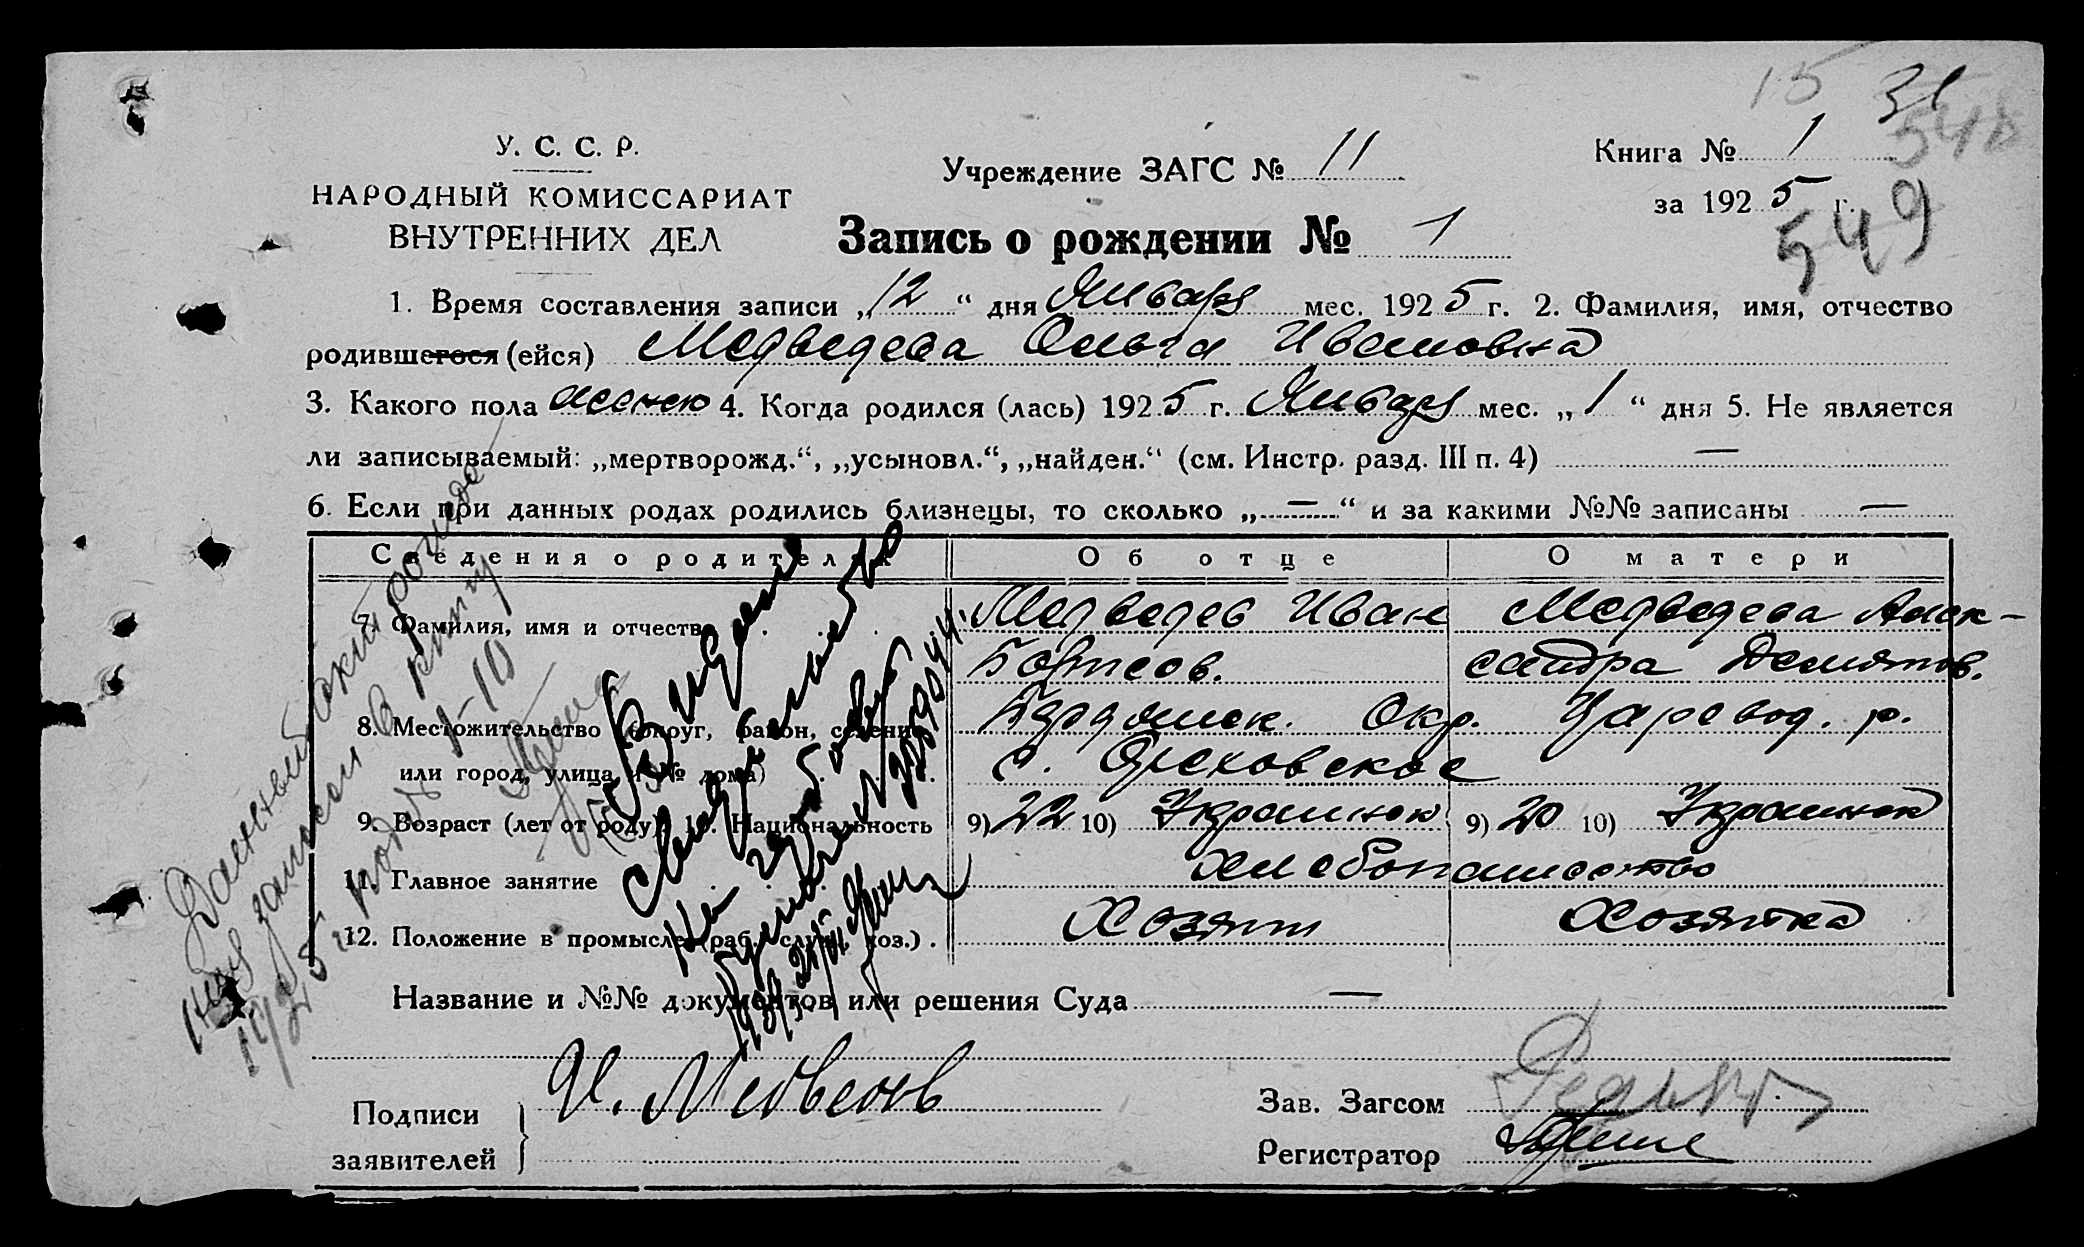 15 31
548
549
У. С. С. Р.
НАРОДНЫЙ КОМИССАРИАТ
ВНУТРЕННИХ ДЕЛ
Учреждение ЗАГС № 11
Книга № 1
за 1925 г.
Запись о рождении № 1
1. Время составления записи „12“ дня Января мес. 1925 г. 2. Фамилия, имя, отчество
родившегося (ейся) Медведева Ольга Ивановна
3. Какого пола женск 4. Когда родился (лась) 1925 г. Января мес. „1“ дня 5. Не является
ли записываемый: „мертворожд.“, „усыновл.“, „найден.“ (см. Инстр. разд. III п. 4) —
6. Если при данных родах родились близнецы, то сколько „—“ и за какими №№ записаны —
Сведения о родителях Об отце О матери
7. Фамилия, имя и отчество Медведев Иван Медведева Алек-
Борисов. сандра Демянов.
8. Местожительство (округ, район, селение Бердянск. Окр. Царевод. р.
или город, улица и № дома) с. Ореховское
9. Возраст (лет от роду) 10. Национальность 9) 22 10) Украинск 9) 20 10) Украинск
11. Главное занятие хлебопашество
12. Положение в промысле (раб., служ., хоз.) Хозяин Хозяйка
Название и №№ документов или решения Суда —
Подписи
заявителей
И. Медведев
Зав. Загсом
Регистратор
Данный
записан в книгу
1925 года
1-10
Выдано
свидетельство